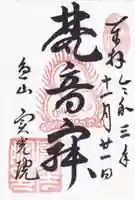 奉拝 令和三年
十一月廿一日
梵音殿
魚山 実光院